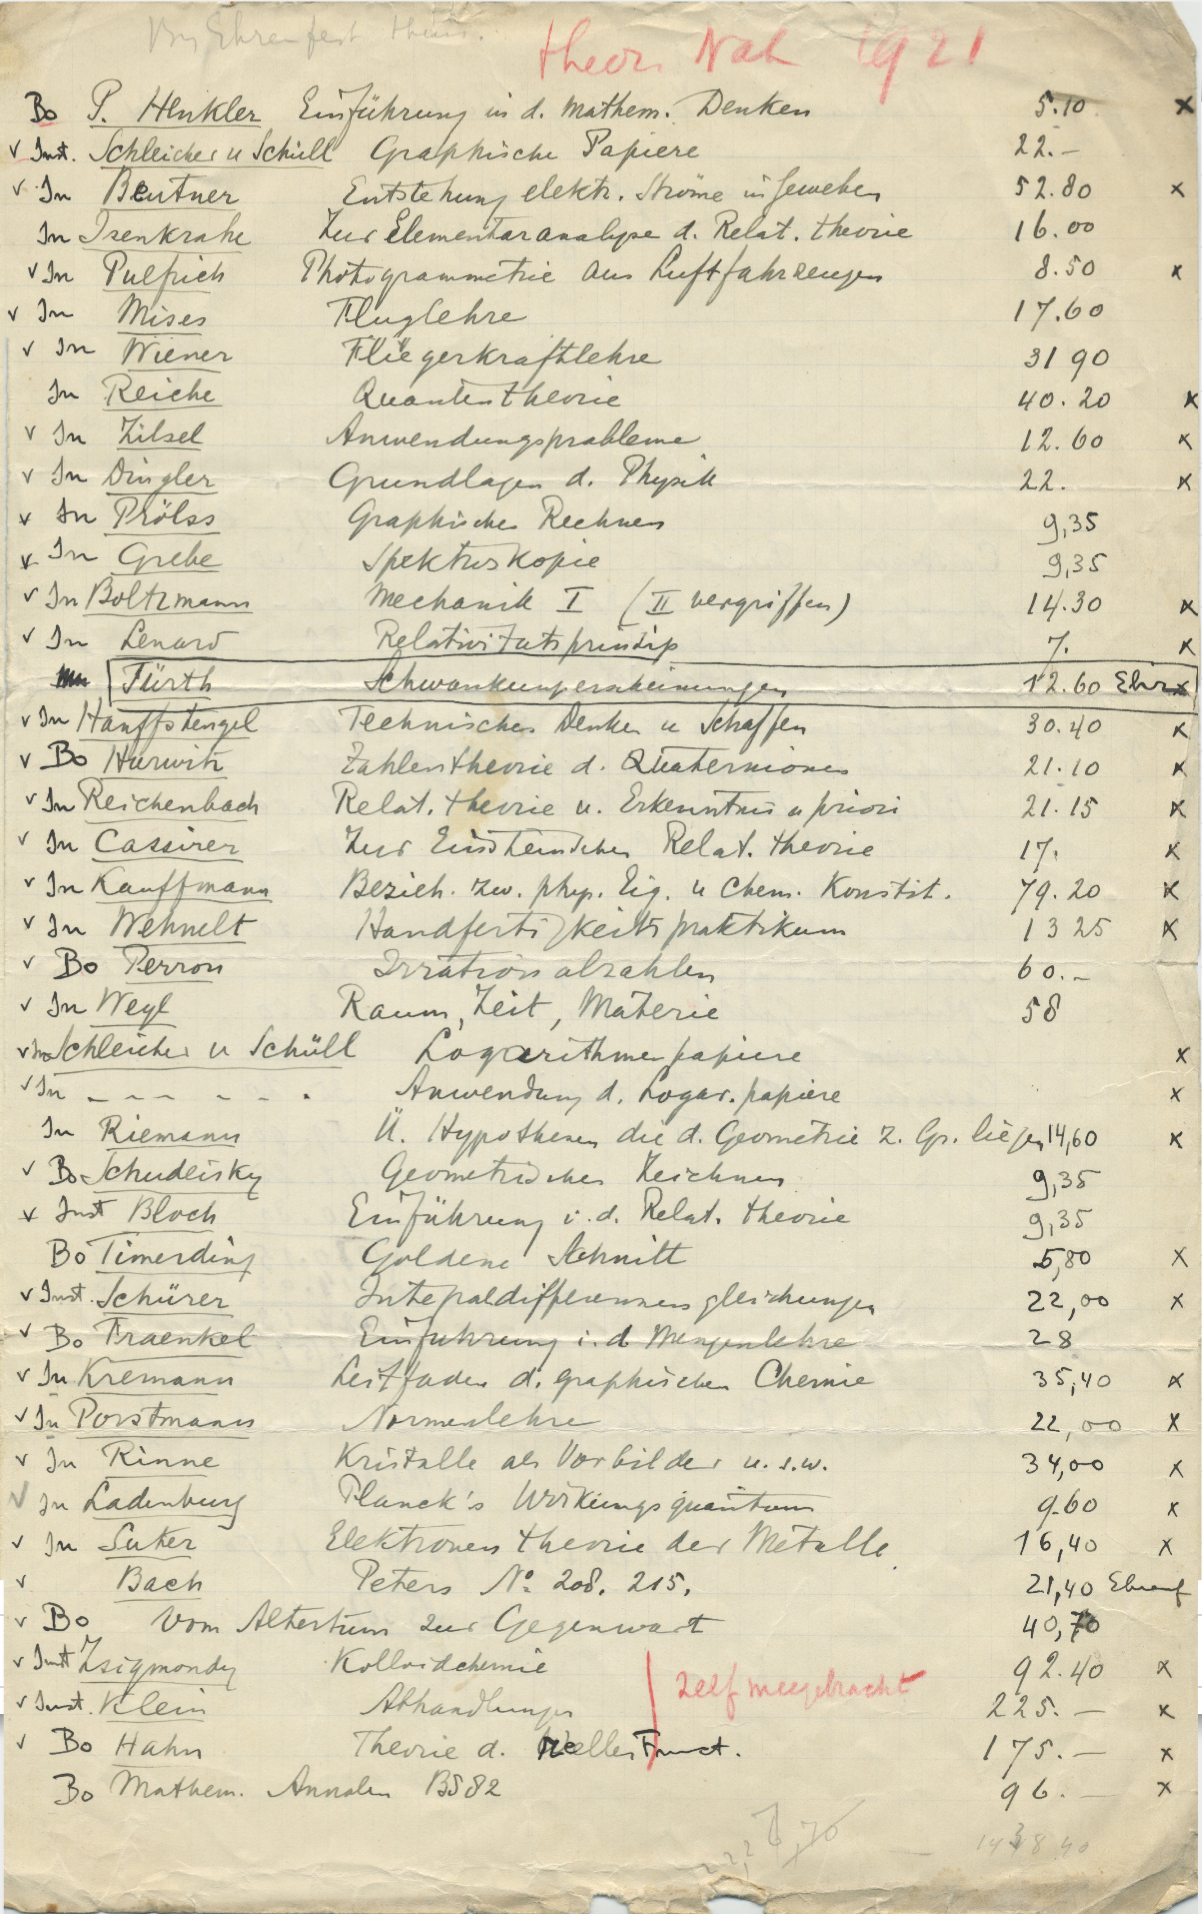 Ehrenfest thuis.
theor. Nat 1921
Bo P. Henkler Einführung in d. Mathem. Denken 5.10 x
v Inst. Schleicher u Schüll Graphische Papiere 22.–
v In Beutner Entstehung elektr. Ströme in Geweben 52.80 x
In Isenkrahe Zur Elementaranalyse d. Relat. theorie 16.00
v In Pulfrich Photogrammetrie aus Luftfahrzeugen 8.50 x
v In Mises Fluglehre 17.60
v In Wiener Fliegerkraftlehre 31 90
In Reiche Quantentheorie 40.20 x
v In Zilsel Anwendungsprobleme 12.60 x
v In Dingler Grundlagen d. Physik 22. x
v In Prölss Graphisches Rechnen 9,35
v In Grebe Spektroskopie 9,35
v In Boltzmann Mechanik I (II vergriffen) 14.30 x
v In Lenard Relativitätsprinzip 7. x
Fürth Schwankungserscheinungen 12.60 Ehr x
v In Hanffstengel Technisches Denken u Schaffen 30.40 x
v Bo Hurwitz Zahlentheorie d. Quaternionen 21.10 x
v In Reichenbach Relat. theorie u. Erkenntnis a priori 21.15 x
v In Cassirer Zur Einsteinschen Relat. theorie 17. x
v In Kauffmann Bezieh. zw. phys. Eig. u Chem. Konstit. 79.20 x
v In Wehnelt Handfertigkeitspraktikum 13 25 x
v Bo Perron Irrationalzahlen 60.–
v In Weyl Raum, Zeit, Materie 58
v In Schleicher u Schüll Logarithmenpapiere x
v In – – – – – – . Anwendung d. Logar. papiere x
In Riemann Ü. Hypothesen die d. Geometrie z. Gr. liegen 14,60 x
v Bo Schudeisky Geometrisches Zeichnen 9,35
v Inst Bloch Einführung i. d. Relat. theorie 9,35
Bo Timerding Goldene Schnitt 5,80 x
v Inst. Schürer Integraldifferenzengleichungen 22,00 x
v Bo Fraenkel Einfuhrung i. d Mengenlehre 28
v In Kremann Leitfaden d. graphischen Chemie 35,40 x
v In Porstmann Normenlehre 22,00 x
v In Rinne Kristalle als Vorbilder u. s. w. 34,00 x
v In Ladenburg Planck's Wirkungsquantum 9.60 x
v In Suter Elektronentheorie der Metalle 16,40 x
v Bach Peters No 208. 215. 21,40 Ehrenf
v Bo Vom Altertum zur Gegenwart 40,70
v Inst Zsigmondy Kolloidchemie 92.40 x
zelf meegebracht
v Inst. Klein Abhandlungen 225.– x
v Bo Hahn Theorie d. reellen Funct. 175.– x
Bo Mathem. Annalen Bd 82 96.– x